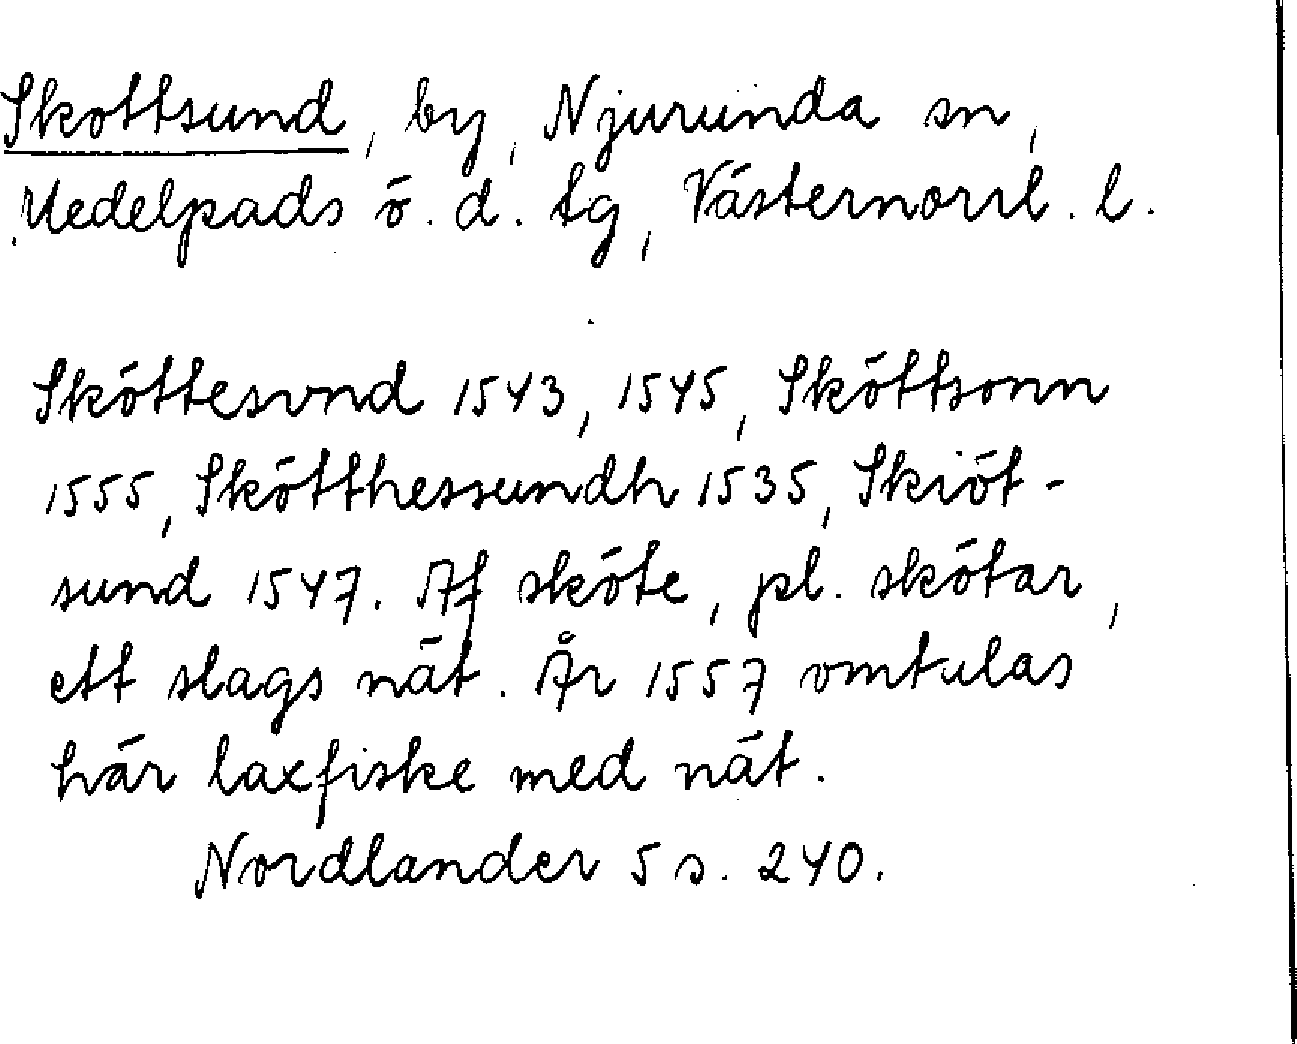 Skottsund, by, Njurunda sn,
Medelpads ö. d. tg, Västernorrl. l.
Sköttesvnd 1543, 1545, Sköttsonn
1555, Skötthessundh 1535, Skiöt-
sund 1547. Af sköte, pl. skötar,
ett slags nät. År 1557 omtalas
här laxfiske med nät.
Nordlander 5 s. 240.